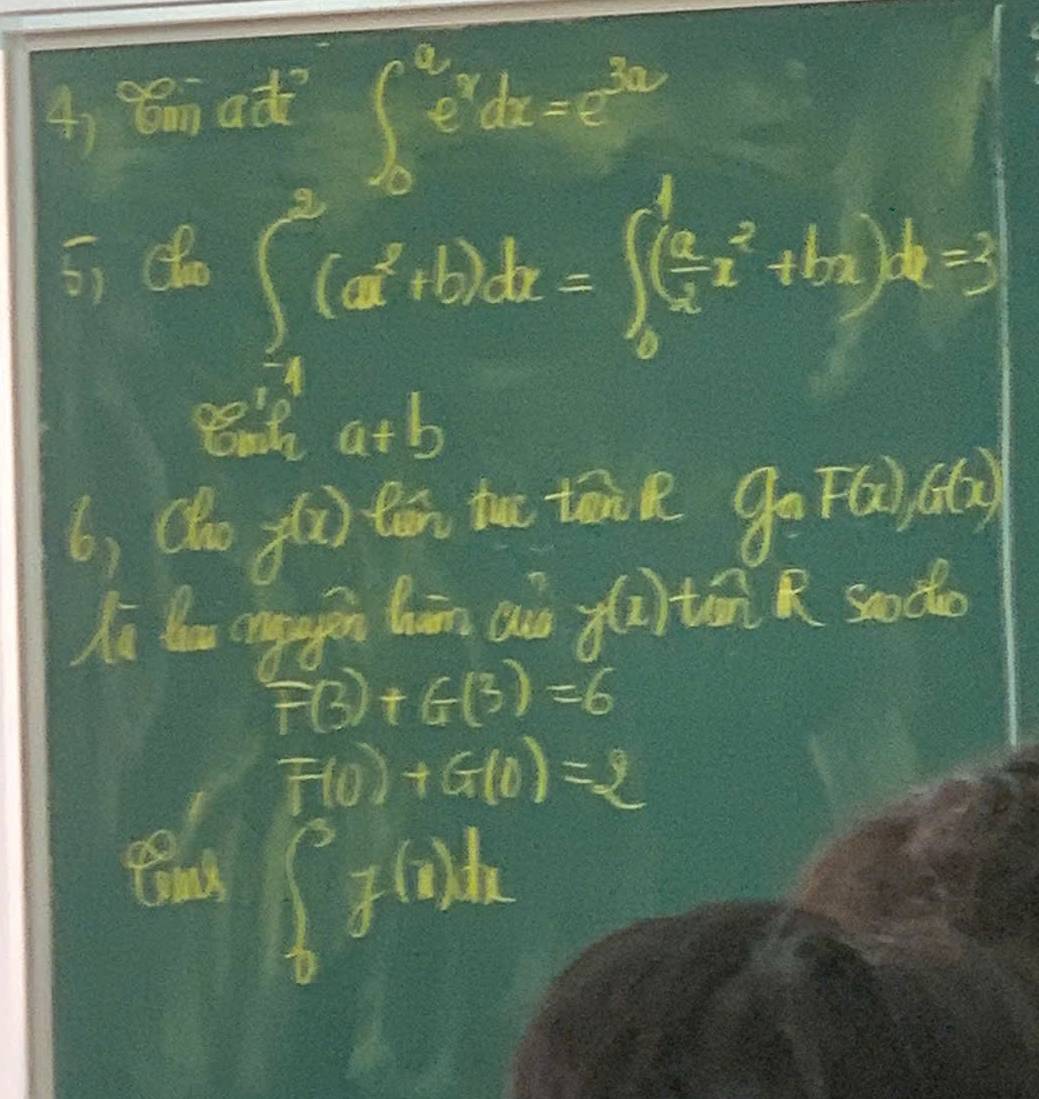 4, Tìm a để ∫₀ᵃ eˣ dx = e³ᵃ
5, Cho ∫₋₁² (ax² + b) dx = ∫₀¹ (a/2 x² + bx) dx = 3
Tính a + b
6, Cho y(x) liên tục trên R Gọi F(x), G(x)
là hai nguyên hàm của y(x) trên R sao cho
F(3) + G(3) = 6
F(0) + G(0) = 2
Tính ∫₀³ y(x) dx